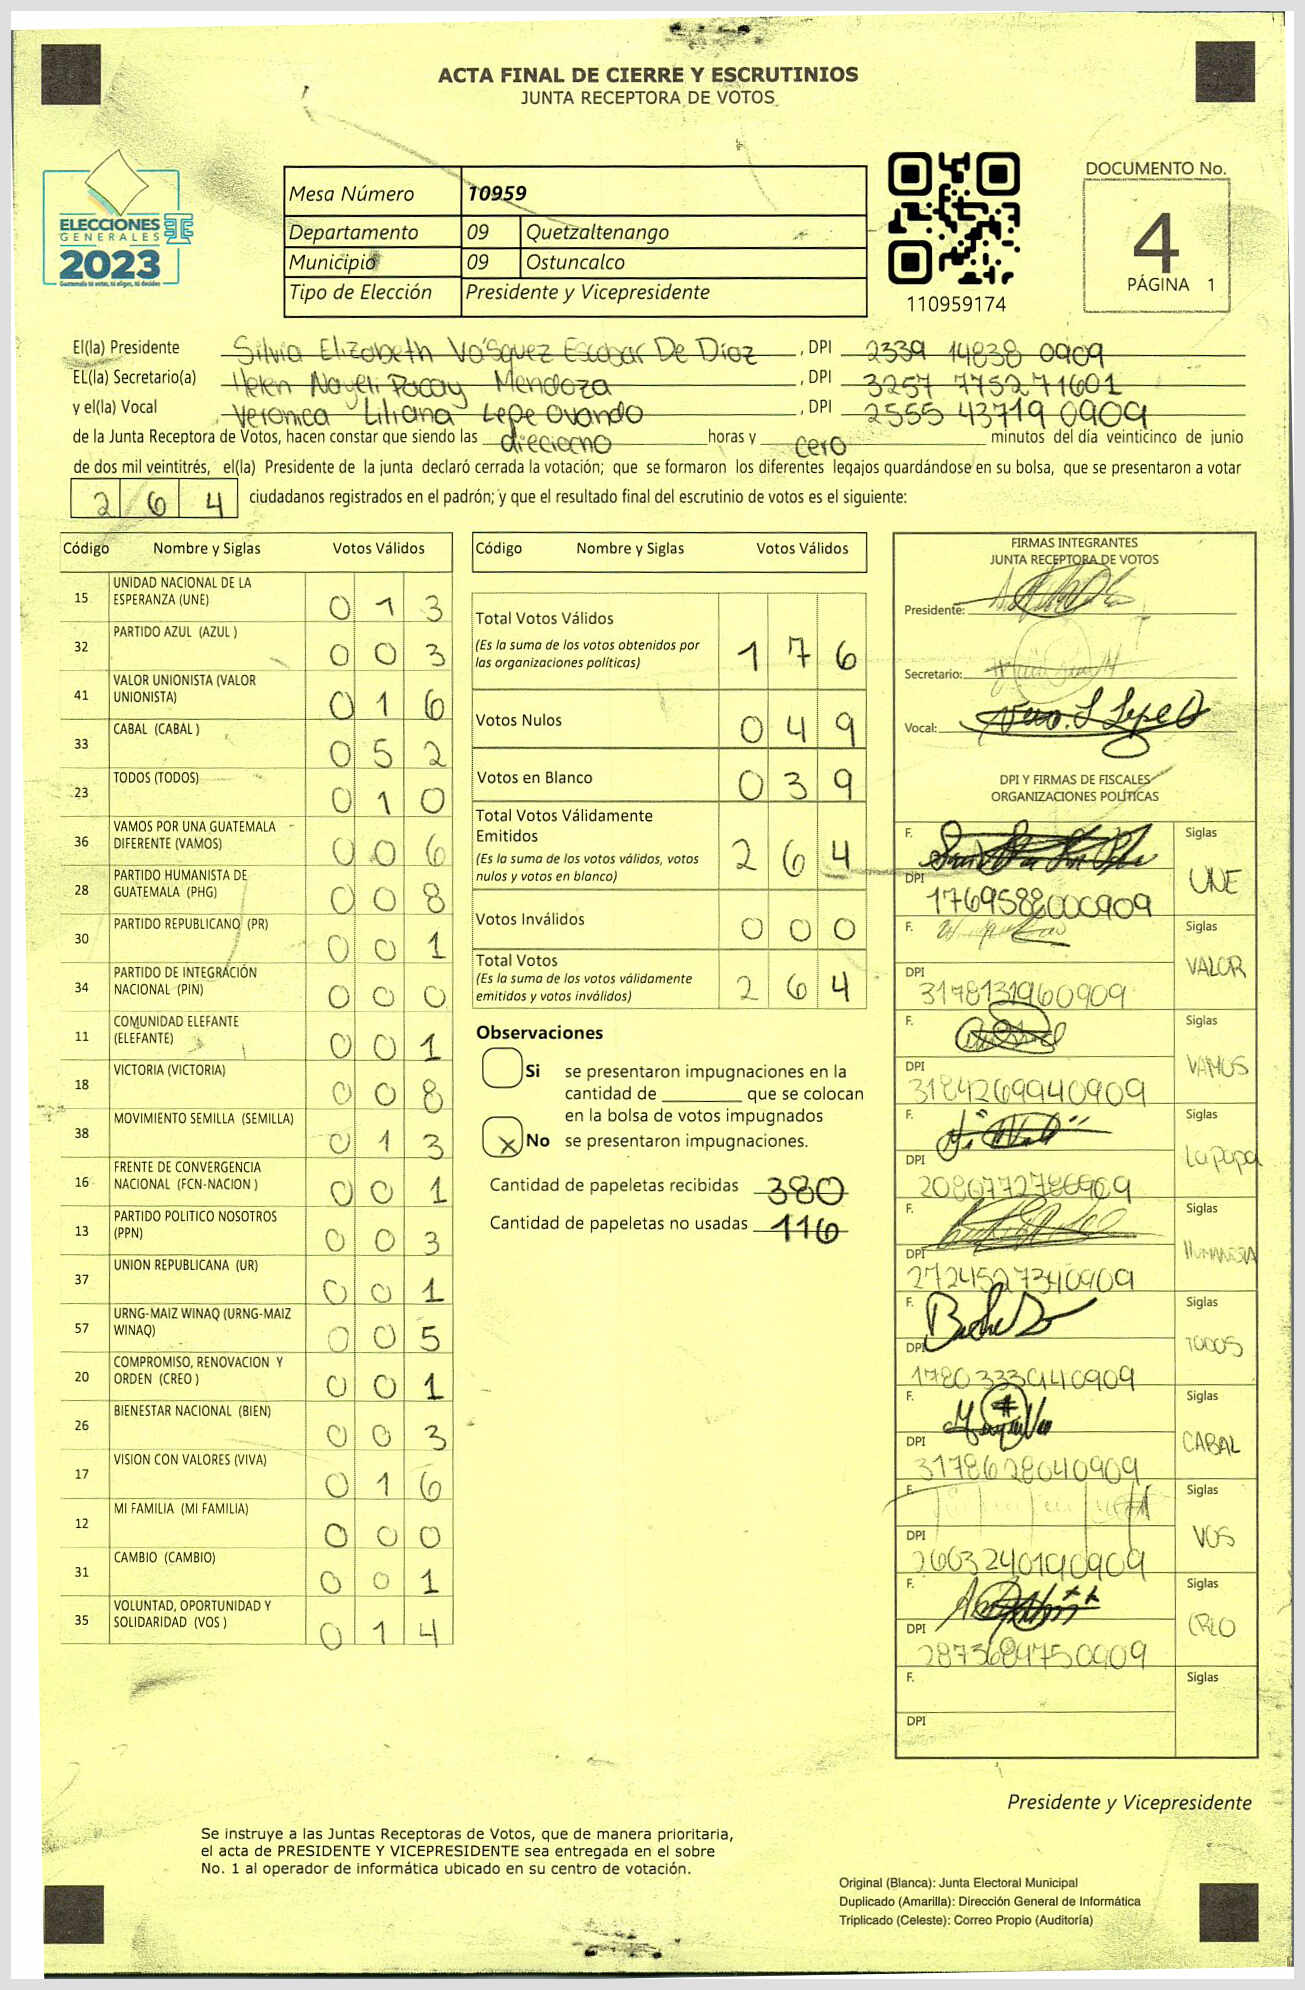 ACTA FINAL DE CIERRE Y ESCRUTINIOS
JUNTA RECEPTORA DE VOTOS
ELECCIONES
GENERALES
2023
Mesa Número 10959
Departamento 09 Quetzaltenango
Municipio 09 Ostuncalco
Tipo de Elección Presidente y Vicepresidente
110959174
DOCUMENTO No.
4
PÁGINA 1
El(la) Presidente Silvia Elizabeth Vásquez Escobar De Díaz, DPI 2339 14838 0909
EL(la) Secretario(a) Helen Nayeli Pacay Mendoza, DPI 3257 77527 1601
y el(la) Vocal Veronica Liliana Lepe Ovando, DPI 2555 43719 0909
de la Junta Receptora de Votos, hacen constar que siendo las dieciocho horas y cero minutos del día veinticinco de junio
de dos mil veintitrés, el(la) Presidente de la junta declaró cerrada la votación; que se formaron los diferentes legajos quardándose en su bolsa, que se presentaron a votar
264 ciudadanos registrados en el padrón; y que el resultado final del escrutinio de votos es el siguiente:
Código Nombre y Siglas Votos Válidos
15 UNIDAD NACIONAL DE LA ESPERANZA (UNE) 013
32 PARTIDO AZUL (AZUL ) 003
41 VALOR UNIONISTA (VALOR UNIONISTA) 016
33 CABAL (CABAL ) 052
23 TODOS (TODOS) 010
36 VAMOS POR UNA GUATEMALA DIFERENTE (VAMOS) 006
28 PARTIDO HUMANISTA DE GUATEMALA (PHG) 008
30 PARTIDO REPUBLICANO (PR) 001
34 PARTIDO DE INTEGRACIÓN NACIONAL (PIN) 000
11 COMUNIDAD ELEFANTE (ELEFANTE) 001
18 VICTORIA (VICTORIA) 008
38 MOVIMIENTO SEMILLA (SEMILLA) 013
16 FRENTE DE CONVERGENCIA NACIONAL (FCN-NACION ) 001
13 PARTIDO POLITICO NOSOTROS (PPN) 003
37 UNION REPUBLICANA (UR) 001
57 URNG-MAIZ WINAQ (URNG-MAIZ WINAQ) 005
20 COMPROMISO, RENOVACION Y ORDEN (CREO ) 001
26 BIENESTAR NACIONAL (BIEN) 003
17 VISION CON VALORES (VIVA) 016
12 MI FAMILIA (MI FAMILIA) 000
31 CAMBIO (CAMBIO) 001
35 VOLUNTAD, OPORTUNIDAD Y SOLIDARIDAD (VOS ) 014
Código Nombre y Siglas Votos Válidos
Total Votos Válidos 176
(Es la suma de los votos obtenidos por
las organizaciones políticas)
Votos Nulos 049
Votos en Blanco 039
Total Votos Válidamente
Emitidos 264
(Es la suma de los votos válidos, votos
nulos y votos en blanco)
Votos Inválidos 000
Total Votos 264
(Es la suma de los votos válidamente
emitidos y votos inválidos)
Observaciones
Si se presentaron impugnaciones en la
cantidad de ________ que se colocan
en la bolsa de votos impugnados
X No se presentaron impugnaciones.
Cantidad de papeletas recibidas 380
Cantidad de papeletas no usadas 116
FIRMAS INTEGRANTES
JUNTA RECEPTORA DE VOTOS
Presidente:
Secretario:
Vocal:
DPI Y FIRMAS DE FISCALES
ORGANIZACIONES POLÍTICAS
F. Siglas UNE
DPI 1769588000909
F. Siglas VALOR
DPI 3178131960909
F. Siglas VAMOS
DPI 3184269940909
F. Siglas La Papa
DPI
F. Siglas
DPI 2724527340909
F. Siglas TODOS
DPI 1780333940909
F. Siglas CABAL
DPI 3178628040909
F. Siglas VOS
DPI 2603240190909
F. Siglas CREO
DPI 2873684750909
F. Siglas
DPI
Presidente y Vicepresidente
Se instruye a las Juntas Receptoras de Votos, que de manera prioritaria,
el acta de PRESIDENTE Y VICEPRESIDENTE sea entregada en el sobre
No. 1 al operador de informática ubicado en su centro de votación.
Original (Blanca): Junta Electoral Municipal
Duplicado (Amarilla): Dirección General de Informática
Triplicado (Celeste): Correo Propio (Auditoría)